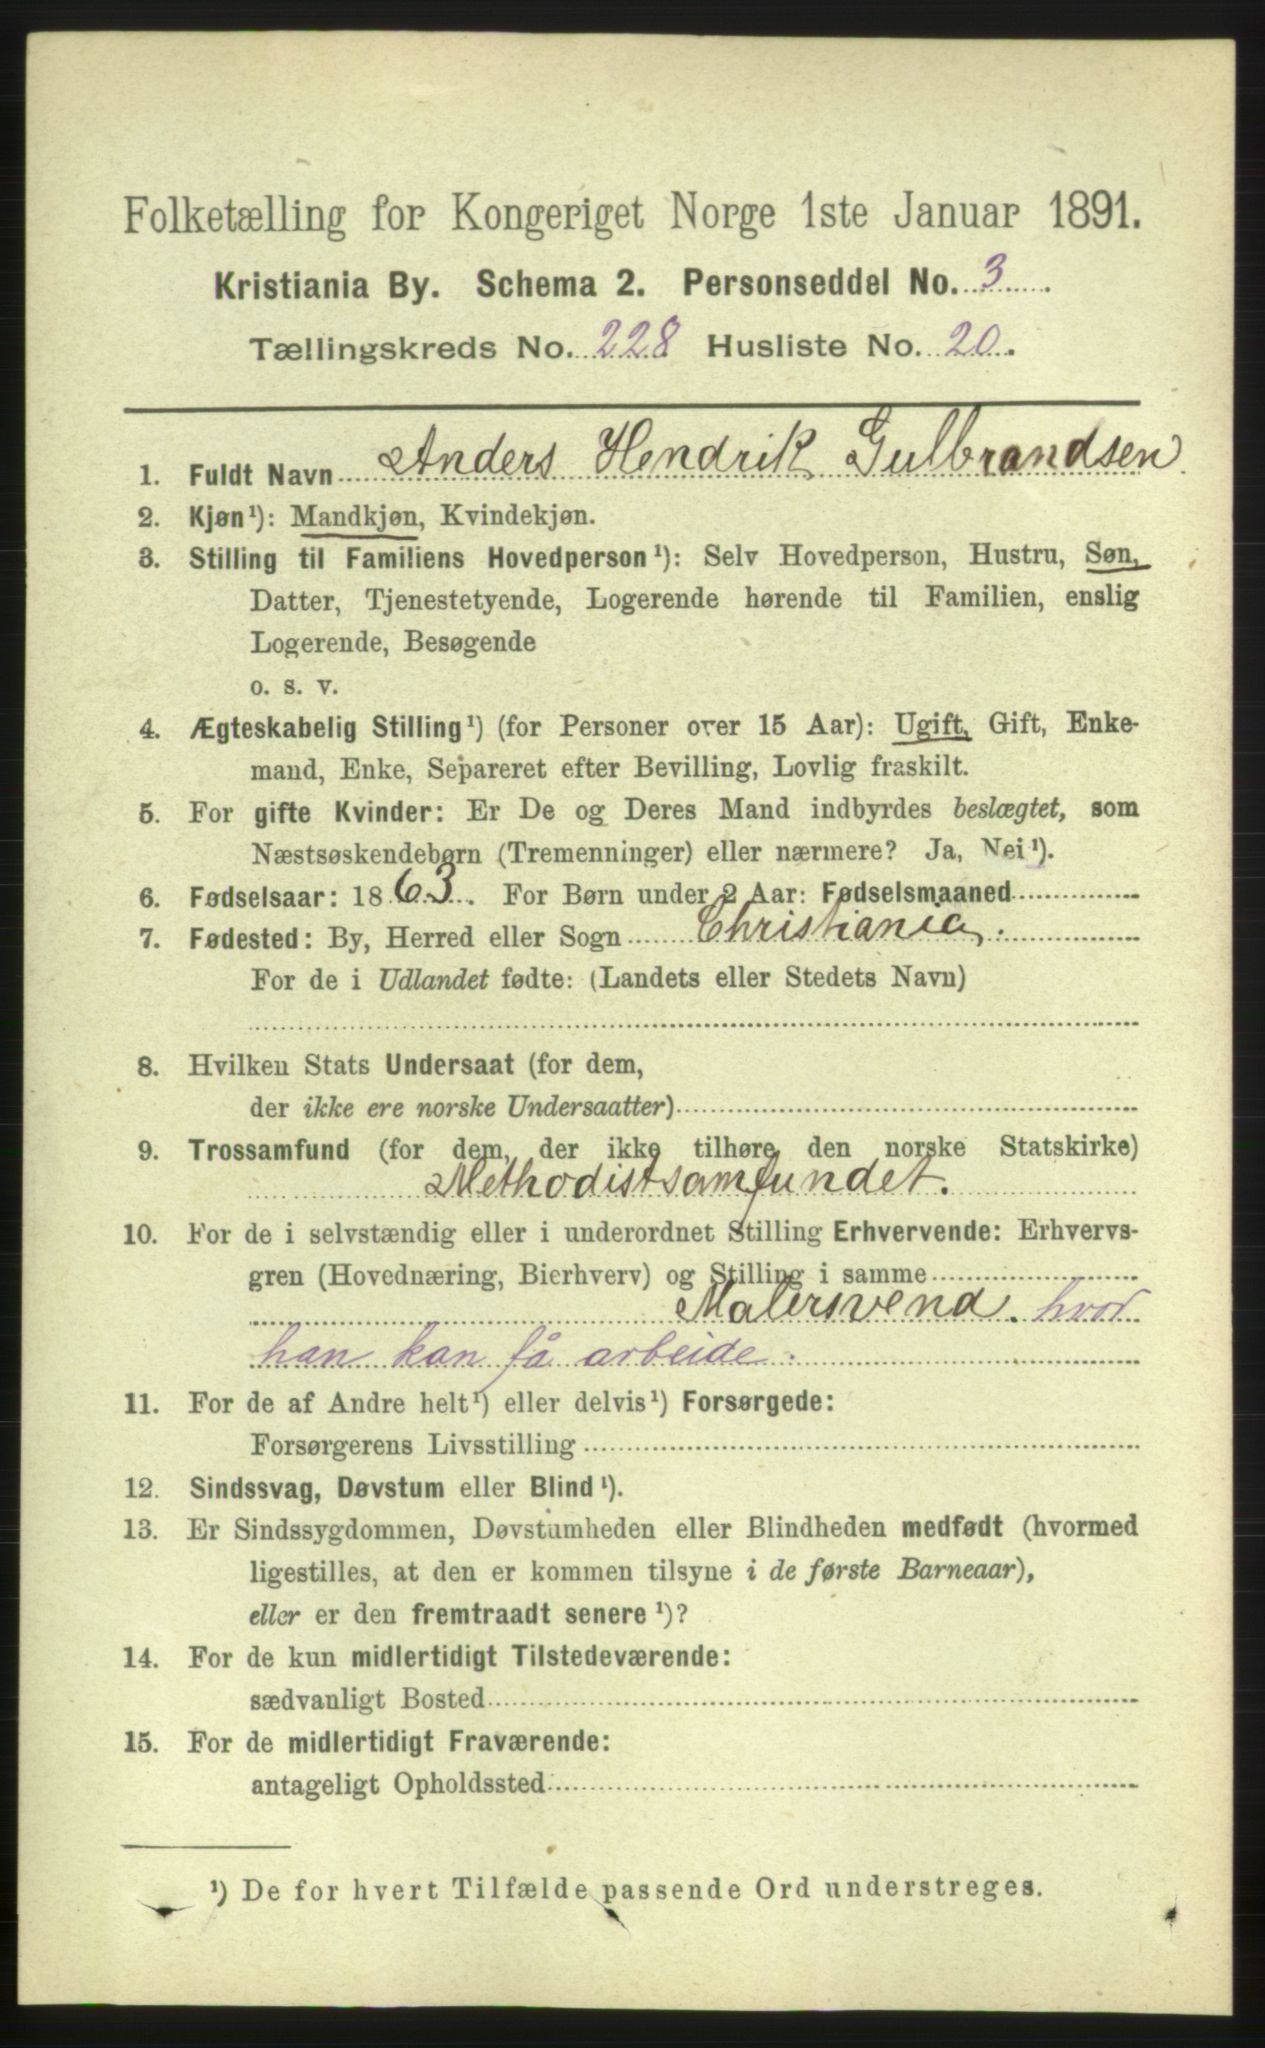 Folketælling for Kongeriget Norge 1ste Januar 1891.
Kristiania By. Schema 2. Personseddel No. 3.
Tællingskreds No. 228 Husliste No. 20.
1. Fuldt Navn Anders Hendrik Gulbrandsen
2. Kjøn¹): Mandkjøn, Kvindekjøn.
3. Stilling til Familiens Hovedperson¹): Selv Hovedperson, Hustru, Søn,
Datter, Tjenestetyende, Logerende hørende til Familien, enslig
Logerende, Besøgende
o. s. v.
4. Ægteskabelig Stilling¹) (for Personer over 15 Aar): Ugift, Gift, Enke-
mand, Enke, Separeret efter Bevilling, Lovlig fraskilt.
5. For gifte Kvinder: Er De og Deres Mand indbyrdes beslægtet, som
Næstsøskendebørn (Tremenninger) eller nærmere? Ja, Nei¹).
6. Fødselsaar: 1863. For Børn under 2 Aar: Fødselsmaaned
7. Fødested: By, Herred eller Sogn Christiania.
For de i Udlandet fødte: (Landets eller Stedets Navn)
8. Hvilken Stats Undersaat (for dem,
der ikke ere norske Undersaatter)
9. Trossamfund (for dem, der ikke tilhøre den norske Statskirke)
Methodistsamfundet.
10. For de i selvstændig eller i underordnet Stilling Erhvervende: Erhvervs-
gren (Hovednæring, Bierhverv) og Stilling i samme
Malersvend. hvor
han kan få arbeide.
11. For de af Andre helt¹) eller delvis¹) Forsørgede:
Forsørgerens Livsstilling
12. Sindssvag, Døvstum eller Blind¹).
13. Er Sindssygdommen, Døvstumheden eller Blindheden medfødt (hvormed
ligestilles, at den er kommen tilsyne i de første Barneaar),
eller er den fremtraadt senere¹)?
14. For de kun midlertidigt Tilstedeværende:
sædvanligt Bosted
15. For de midlertidigt Fraværende:
antageligt Opholdssted
¹) De for hvert Tilfælde passende Ord understreges.